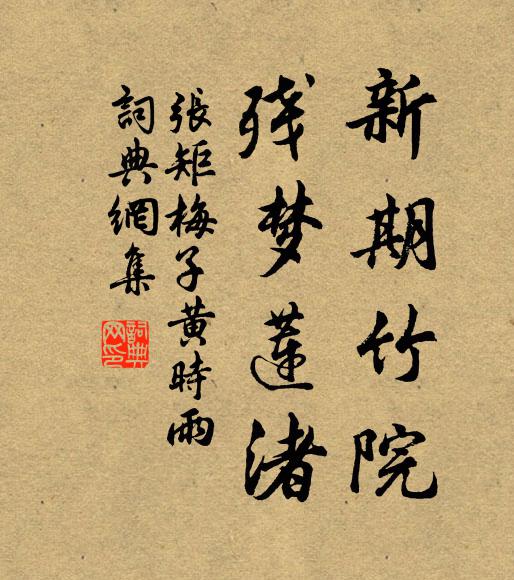 新期竹院
残梦莲渚
張矩梅子黄時雨
詞典網集
詞典網印